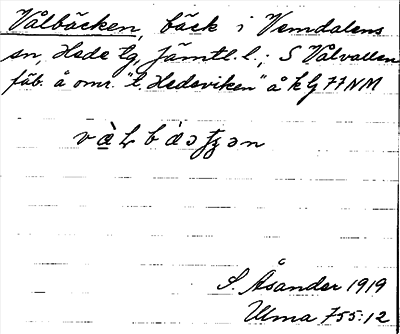 Vålbäcken, bäck i Vemdalens
sn, Hede tg, Jämtl. l.; S Vålvallen
fäb. å omr. "t. Hedeviken" å kg 77NM
S. Åsander 1919
Ulma 755:12